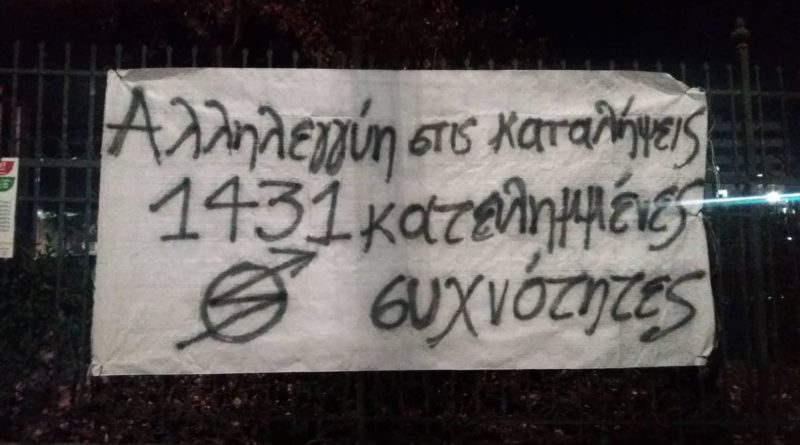 Αλληλεγγύη στις καταλήψεις
1431 κατειλημμένες
συχνότητες